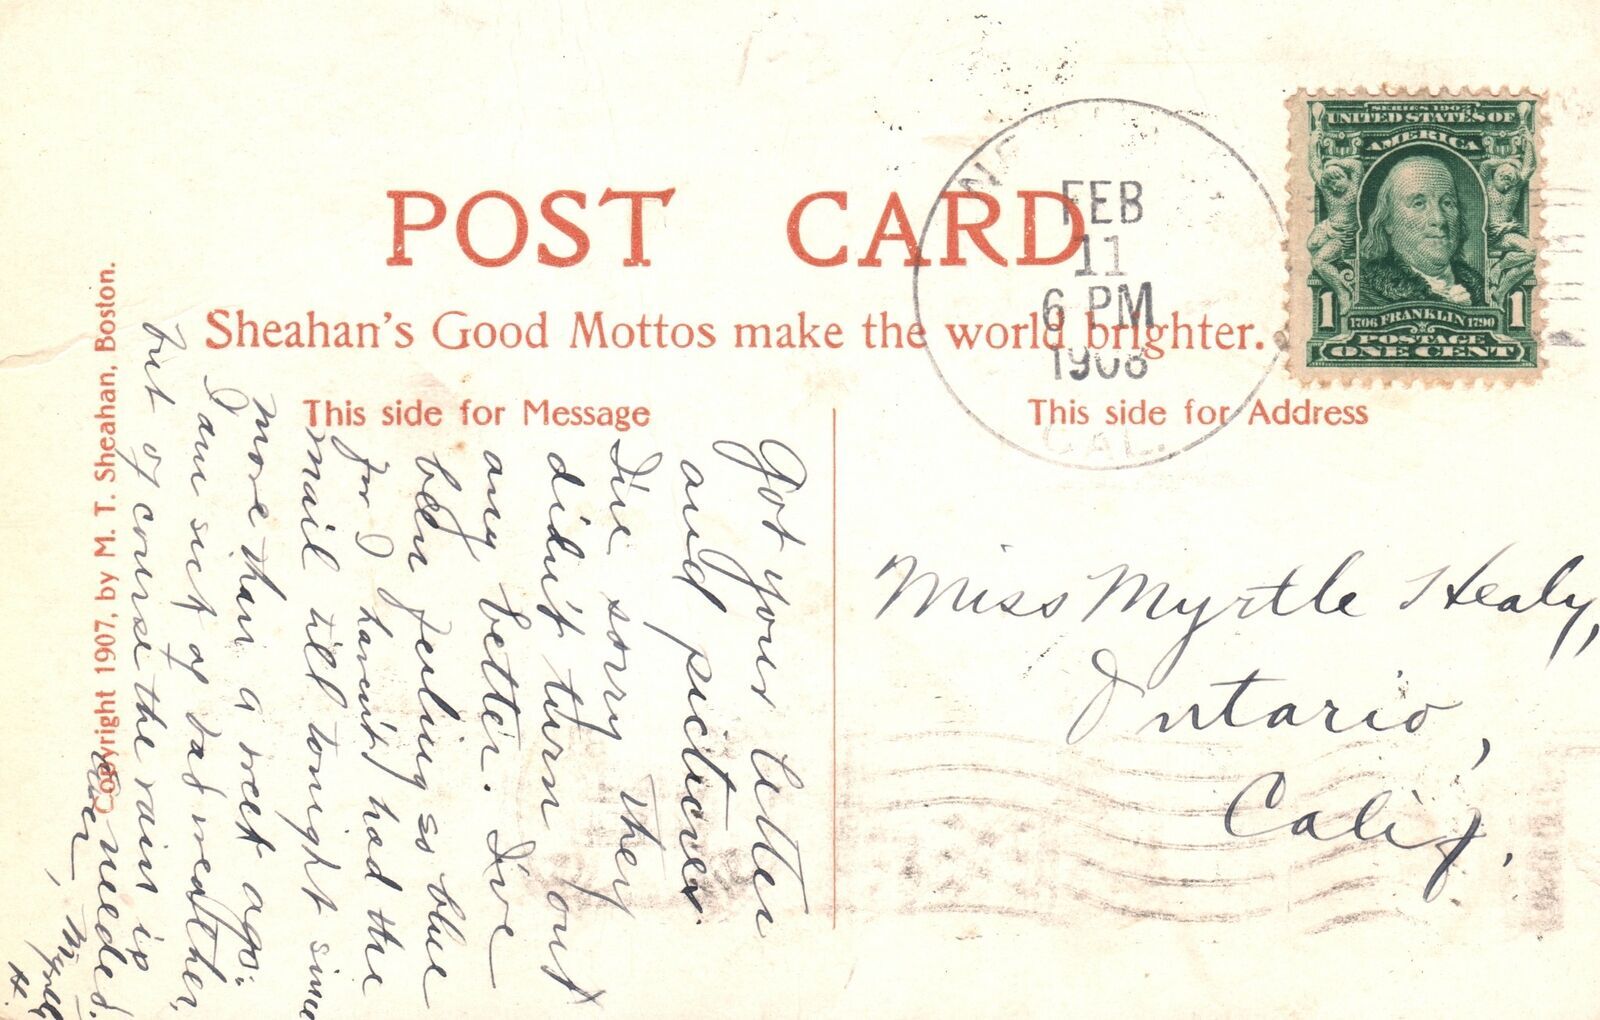 POST CARD
Sheahan's Good Mottos make the world brighter.
This side for Message
This side for Address
Copyright 1907, by M. T. Sheahan, Boston.
FEB
11
6 PM
1908
CAL.
SERIES 1902
UNITED STATES OF
AMERICA
1706 FRANKLIN 1790
1 1
POSTAGE
ONE CENT
Got your letter
and pictures.
I'm sorry they
didn't turn out
any better. I've
been feeling so blue
for I haven't had the
mail till tonight since
more than a week ago.
I am sick of bad weather,
but of course the rain is
needed.
H.
Miss Myrtle Healy,
Ontario,
Calif.